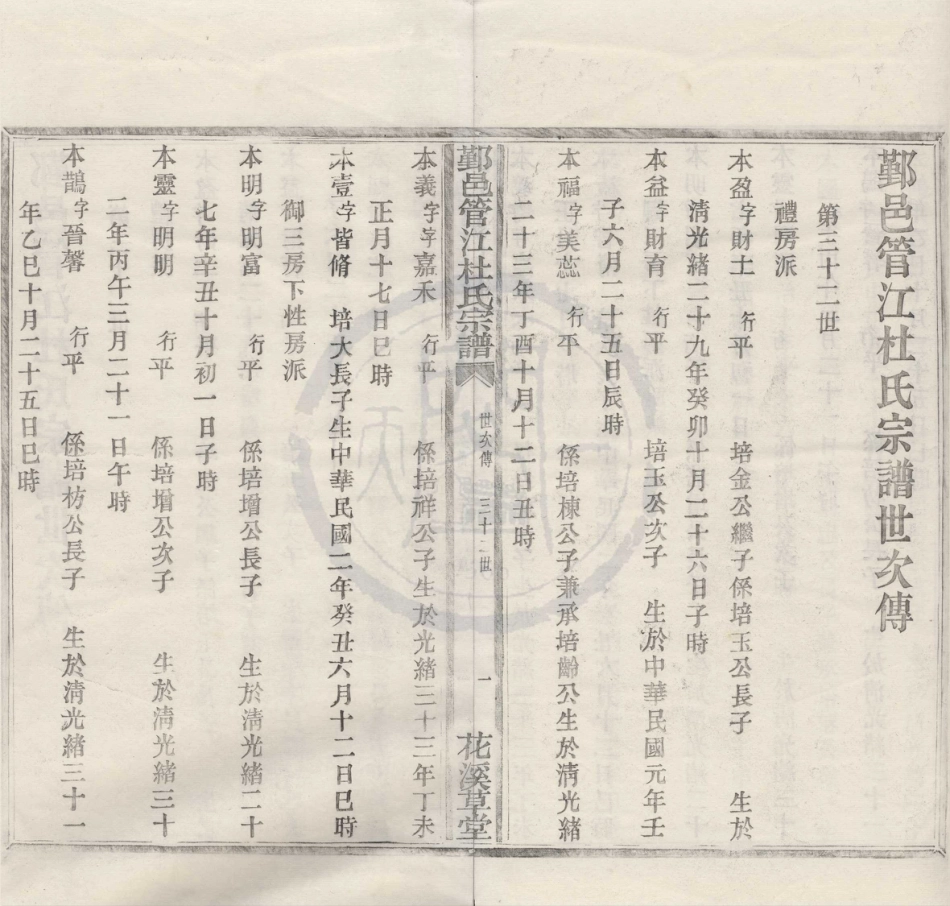 鄞邑管江杜氏宗譜世次傳
第三十二世
禮房派
本盈字財土 行平 培金公繼子係培玉公長子 生於
清光緒二十九年癸卯十月二十六日子時
本益字財育 行平 培玉公次子 生於中華民國元年壬
子六月二十五日辰時
本福字美蕊 行平 係培棟公子兼承培齡公生於清光緒
二十三年丁酉十月十二日丑時
鄞邑管江杜氏宗譜 世次傳 三十二世 一 花溪草堂
本義字字嘉禾 行平 係培祥公子生於光緒三十三年丁未
正月十七日巳時
本壹字皆脩 培大長子生中華民國二年癸丑六月十二日巳時
御三房下性房派
本明字明富 行平 係培增公長子 生於清光緒二十
七年辛丑十月初一日子時
本靈字明明 行平 係培增公次子 生於清光緒三十
二年丙午三月二十一日午時
本鵲字晉馨 行平 係培枋公長子 生於清光緒三十一
年乙巳十月二十五日巳時